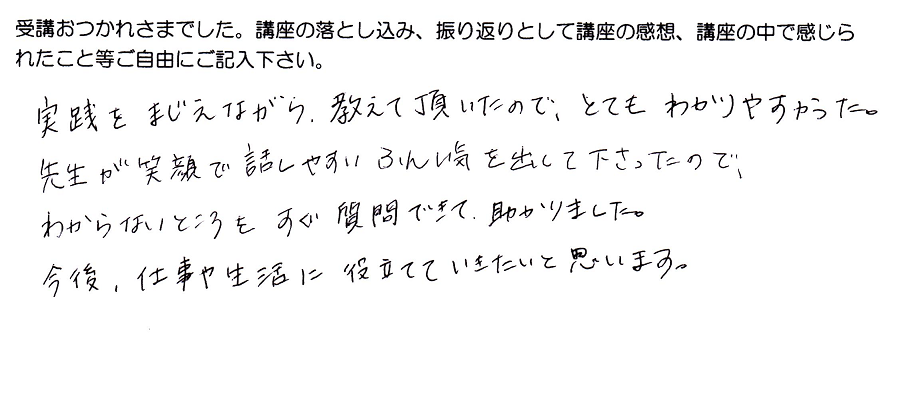 受講おつかれさまでした。講座の落とし込み、振り返りとして講座の感想、講座の中で感じら
れたこと等ご自由にご記入下さい。
実践を まじえながら、教えて頂いたので、とても わかりやすかった。
先生が笑顔で話しやすいふんい気を出して下さったので、
わからないところを すぐ質問できて、助かりました。
今後、仕事や生活に 役立てていきたいと思います。